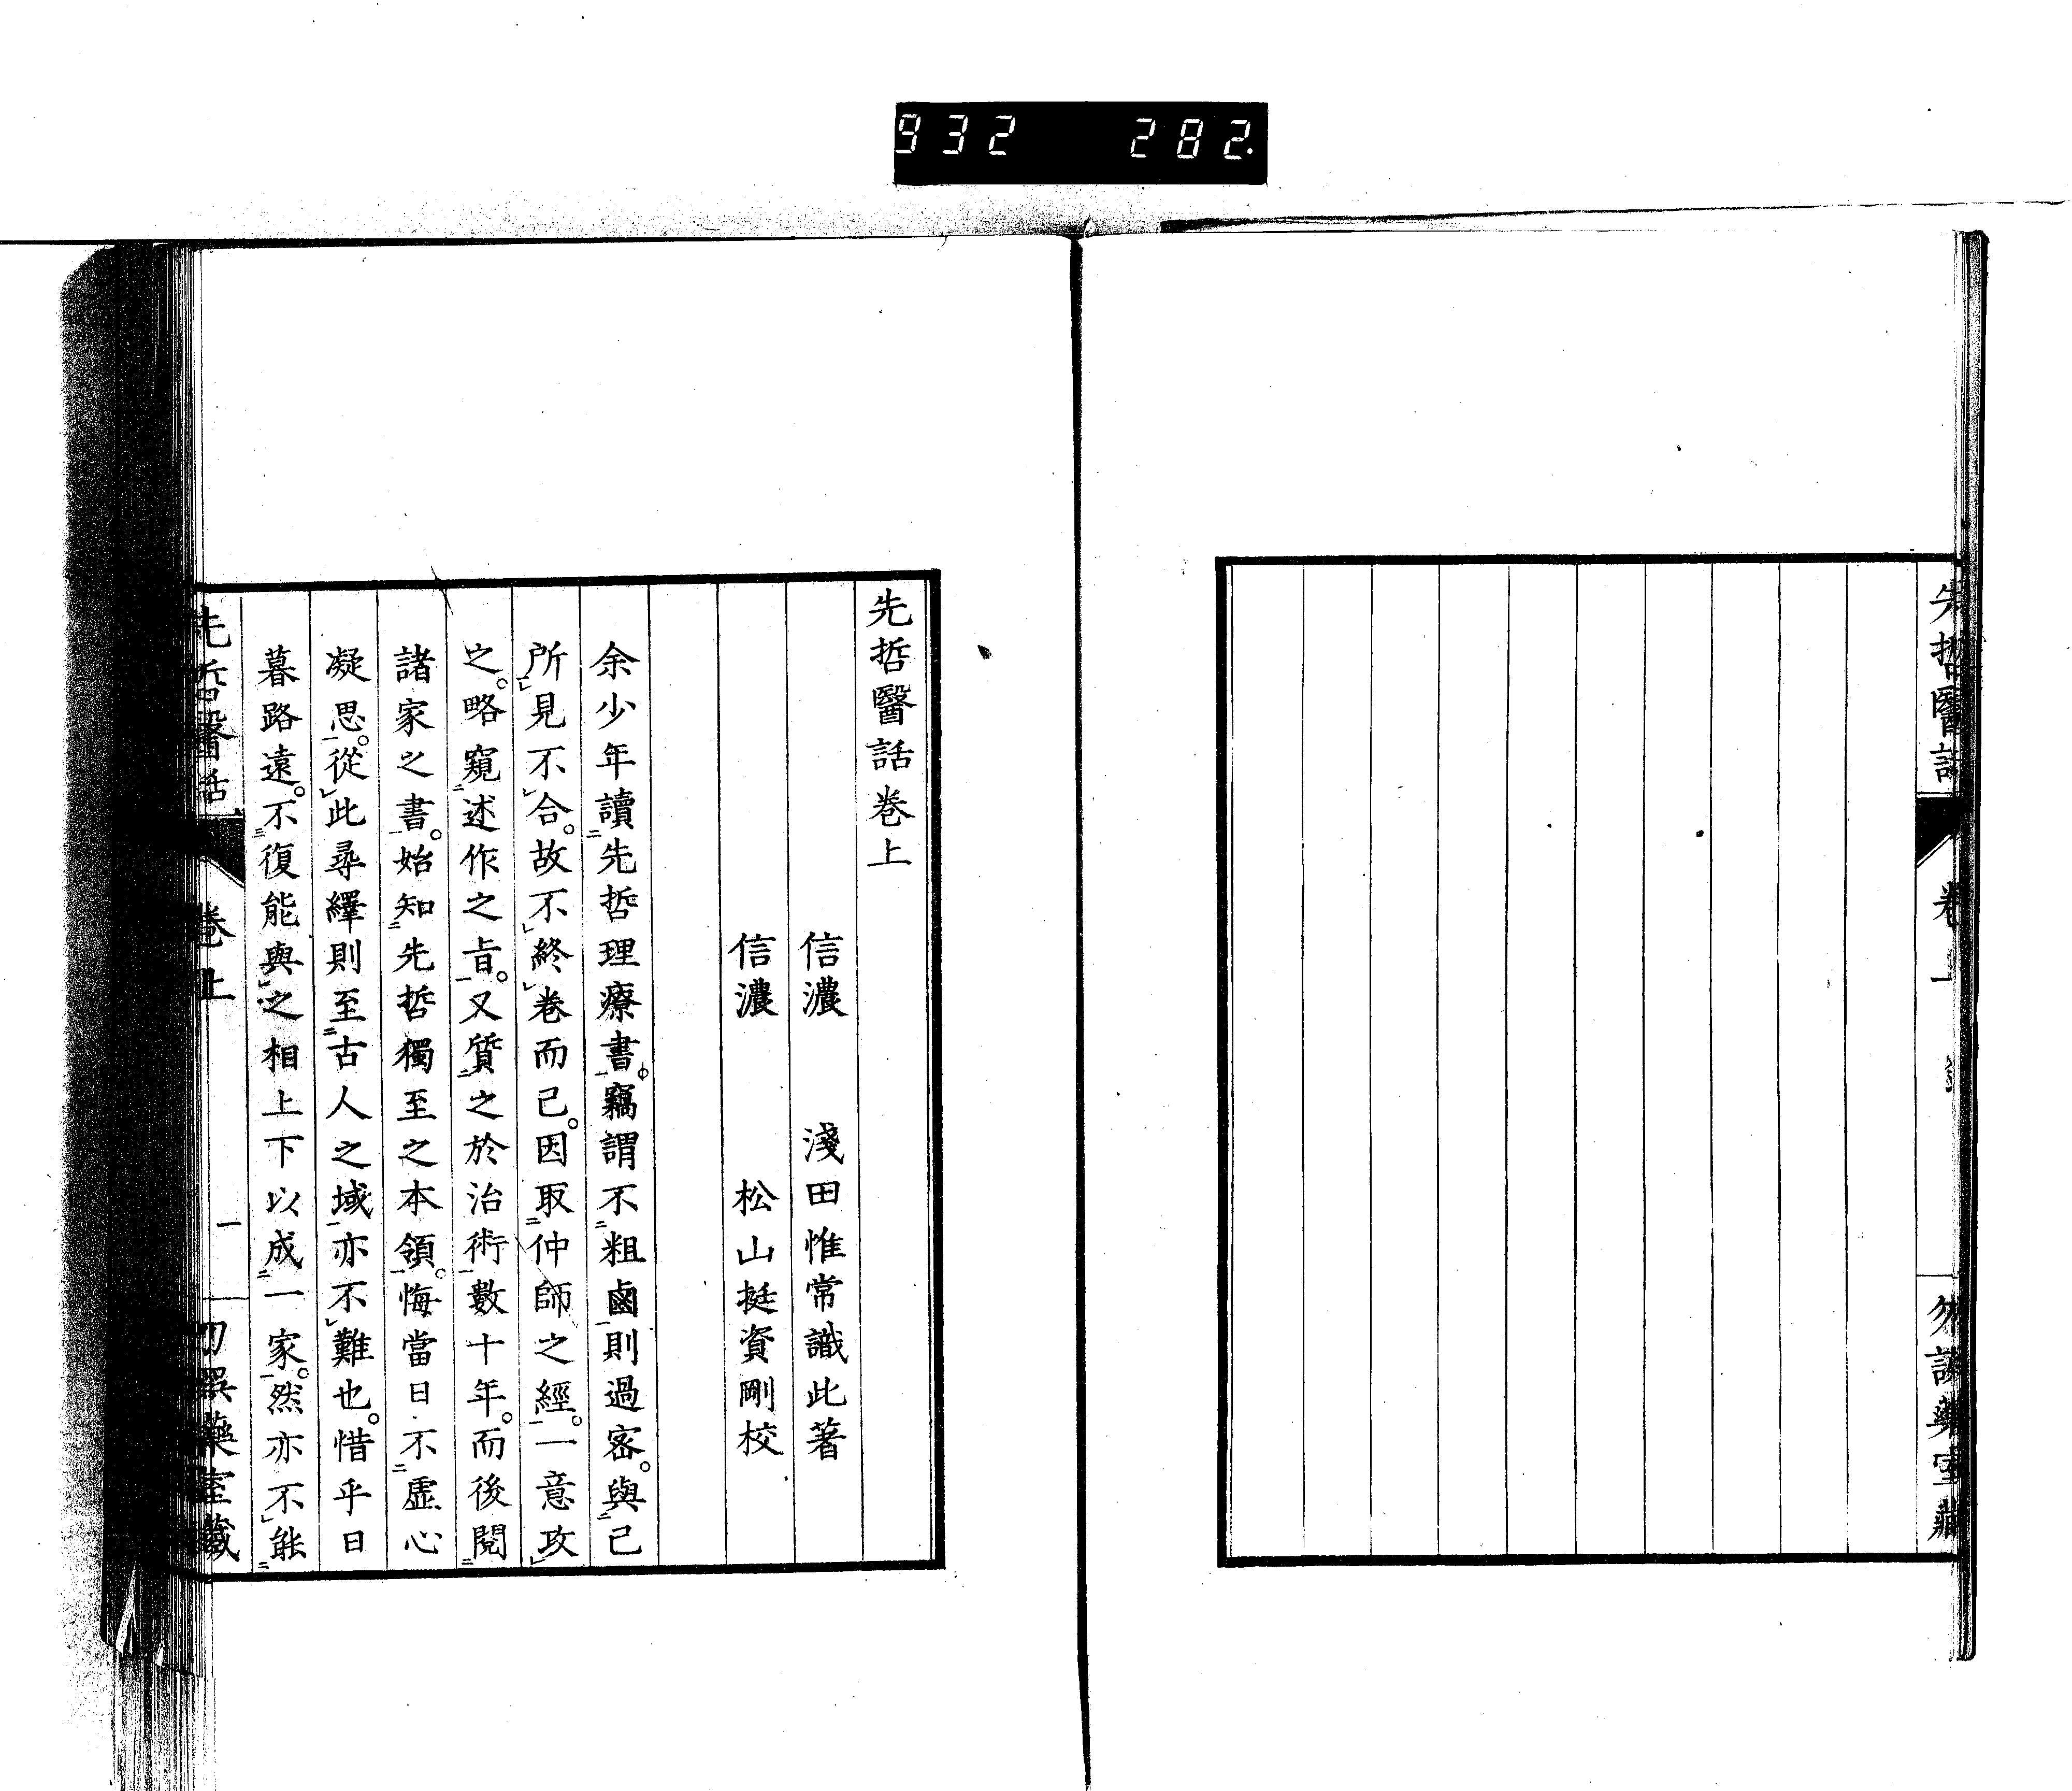 932 282.
先哲醫話
卷上
勿誤藥室藏
先哲醫話卷上
信濃 淺田惟常識此著
信濃 松山挺資剛校
余少年讀二先哲理療書一。竊謂不二粗鹵一則過密。與二己
所レ見不レ合。故不レ終レ卷而已。因取二仲師之經一。一意攻レ
之。略窺二述作之旨一。又質二之於治術一數十年。而後閱二
諸家之書一。始知二先哲獨至之本領一。悔當日不二虛心
凝思一。從レ此尋繹則至二古人之域一亦不レ難也。惜乎日
暮路遠。不三復能與レ之相上下以成二一家一。然亦不レ能二
先哲醫話 卷上 一 勿誤藥室藏